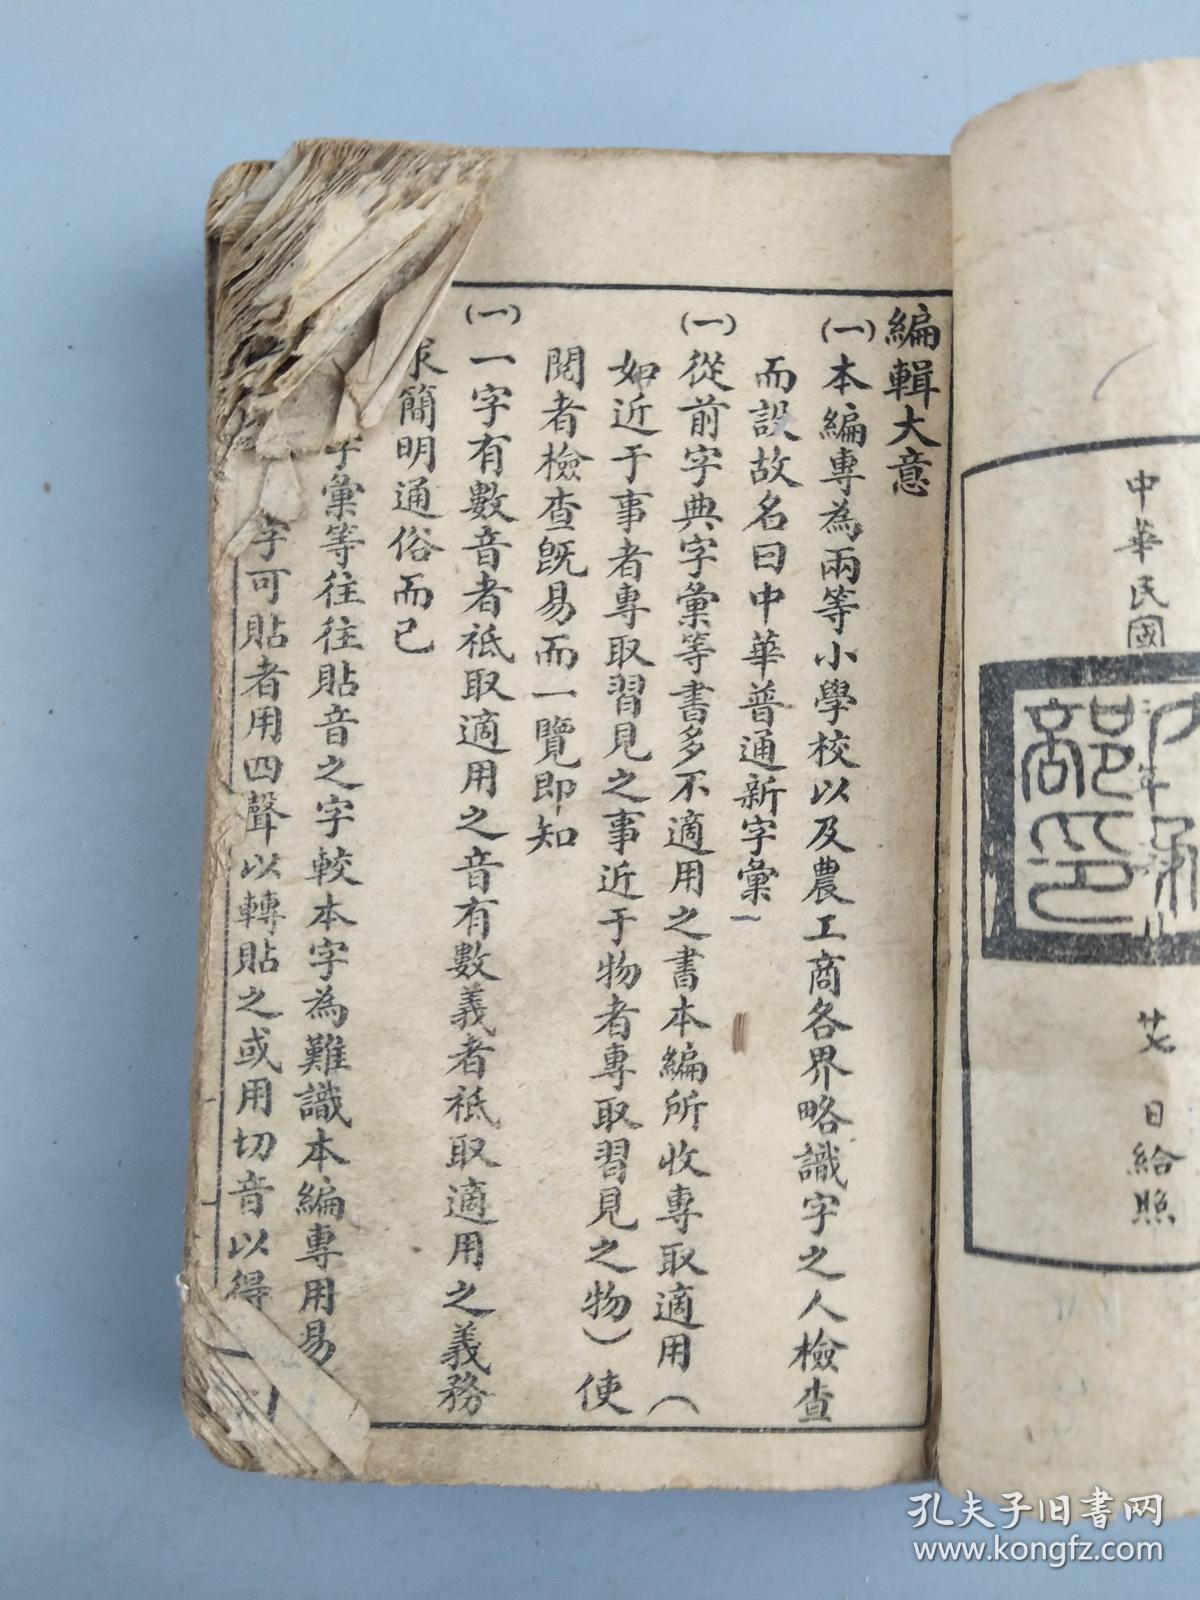 中華民國
艾日給照
部印
編輯大意
(一)本編專為兩等小學校以及農工商各界略識字之人檢查
而設故名曰中華普通新字彙
(一)從前字典字彙等書多不適用之書本編所收專取適用(
如近于事者專取習見之事近于物者專取習見之物)使
閱者檢查既易而一覽即知
(一)一字有數音者祇取適用之音有數義者祇取適用之義務
求簡明通俗而已
字彙等往往貼音之字較本字為難識本編專用易
字可貼者用四聲以轉貼之或用切音以得
孔夫子旧书网
www.kongfz.com